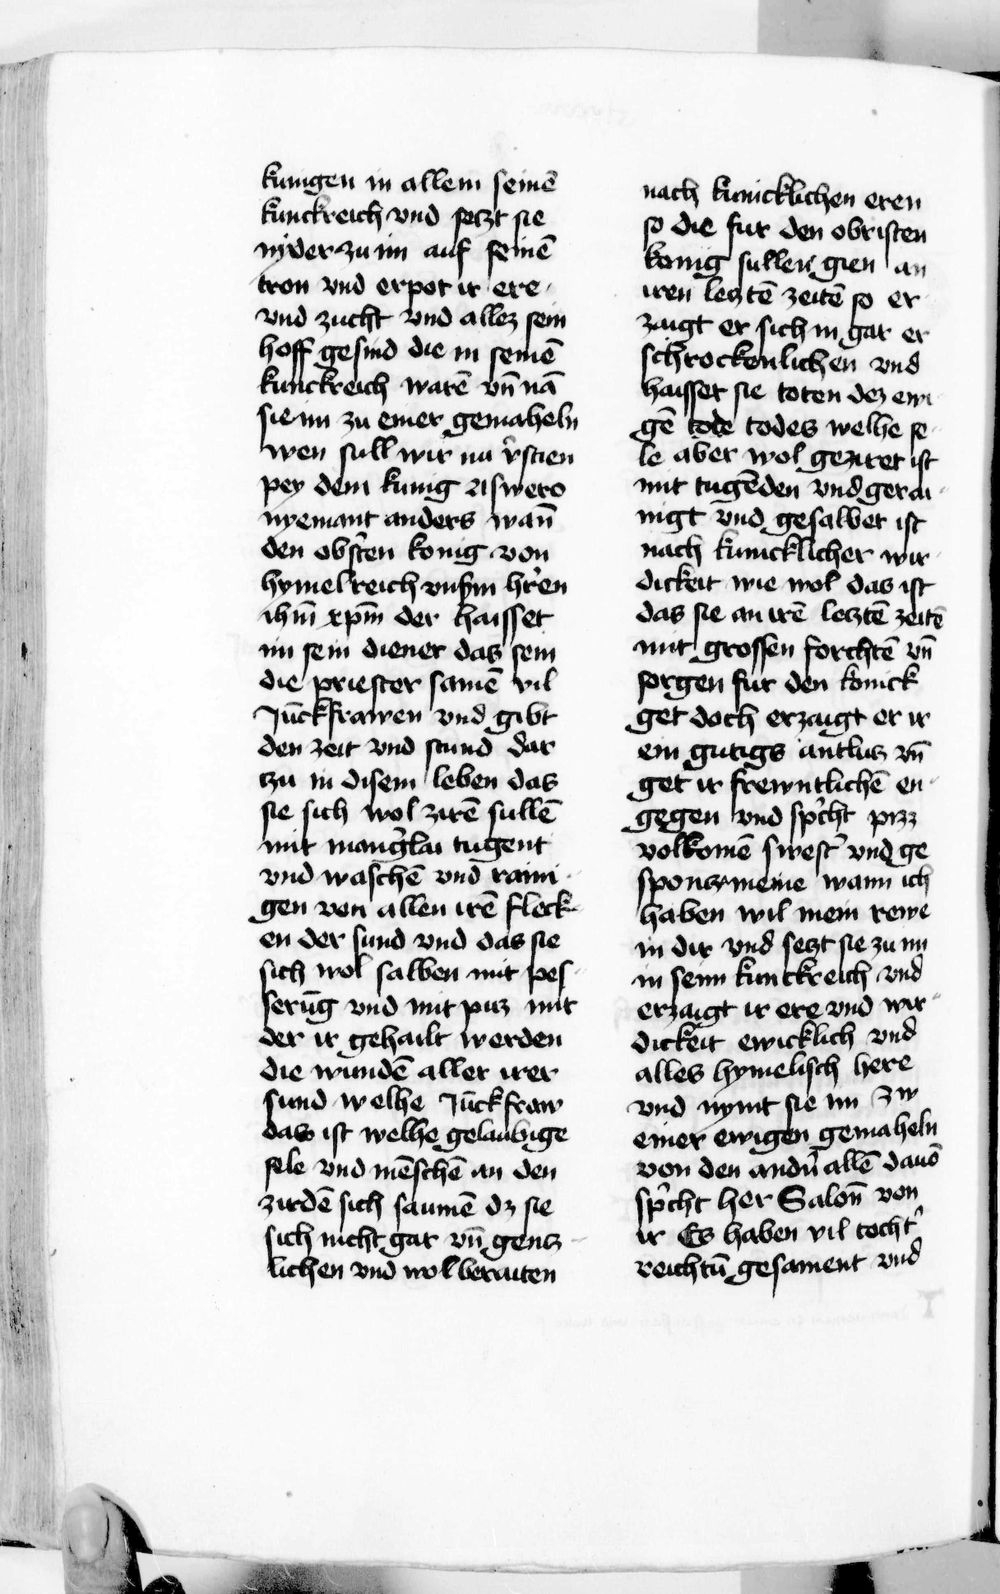 kunigen in allem seinē
kunckreich vnd setzt sie
nyder zu im auf seinē
tron vnd erpot ir ere
vnd zucht vnd allez sein
hoff gesind die in seinē
kunckreich warē vn̄ nā
sie im zu einer gemaheln
wen sull wir nu v̾stien
pey dem kunig Aswero
nyemant anders wan̄
den obsten konig von
hymelreich vnsm hr̄en
ihm̄ xpm̄ der haisset
im sein diener das sein
die priester samē vil
Jūckfrawen vnd gibt
den zeit vnd stund dar
tzu in disem leben das
sie sich wol zirē sullē
mit mang̾lai tugent
vnd waschē vnd raini
gen von allen irē fleck
en der sund vnd das sie
sich wol salben mit pes
serūg vnd mit puz mit
der ir gehailt werden
die wundē aller irer
sund welhe Jūckfraw
das ist welhe gelaubige
sele vnd mēschē an den
zirdē sich saumē dz sie
sich nicht gar vn̄ gentz
lichen vnd wol beraiten
nach kunicklichen eren
so die fur den obristen
konig sullen gien an
iren letztē zeitē so er
zaigt er sich in gar er
schrockenlichen vnd
haisset sie toten dez ewi
gē tode todes welhe se
le aber wol geziret ist
mit tugēden vnd gerai
nigt vnd gesalbet ist
nach kunicklicher wir
dickeit wie wol das ist
das sie an irē letztē zeitē
mit grossen forchtē vn̄
sorgen fur den konick
get doch erzaigt er ir
ein gutigs antlutz vn̄
get ir frewntlichē en
gegen vnd sp̾cht
volkomē swest̾ vnd ge
spontz meine wann ich
haben wil mein rewe
in dir vnd setzt sie zu im
in seim kunckreich vnd
erzaigt ir ere vnd wir
dickeit ewicklich vnd
alles hymelisch here
vnd nymt sie im zw
einer ewigen gemaheln
von den andn̾ allē dauō
sp̾cht her Salon̄ von
ir Es haben vil tocht̾
reichtū gesament vnd